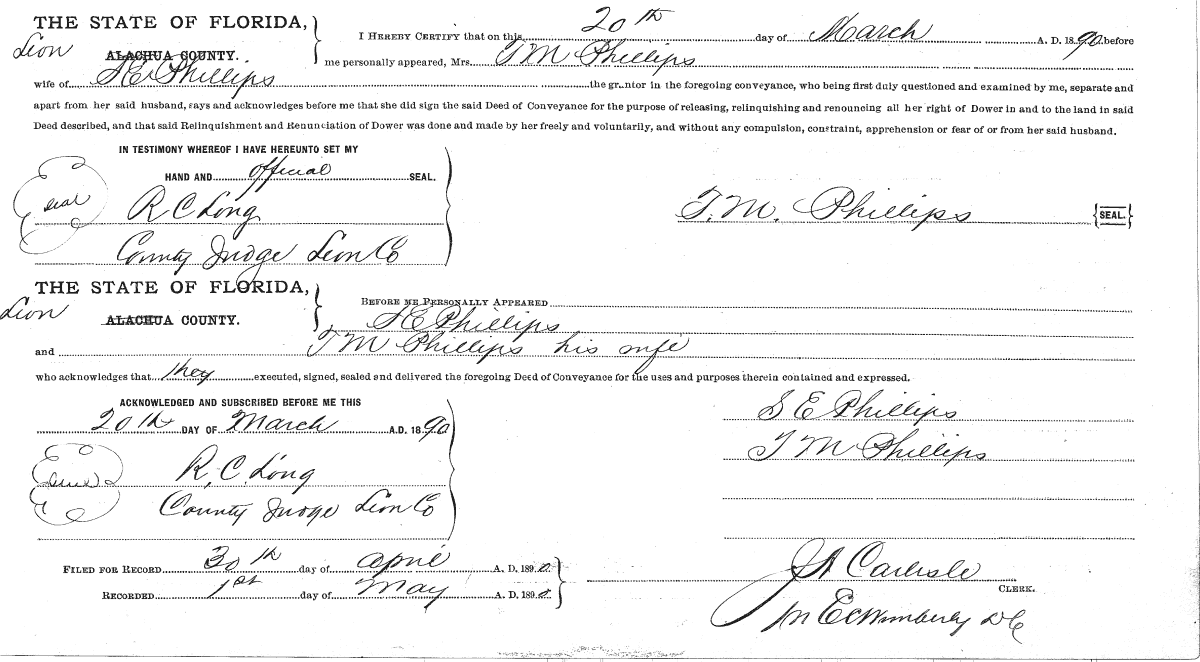 THE STATE OF FLORIDA,
Leon ALACHUA COUNTY.
I HEREBY CERTIFY that on this 20th day of March A. D. 1890 before
me personally appeared, Mrs. T M Phillips
wife of S E Phillips the grantor in the foregoing conveyance, who being first duly questioned and examined by me, separate and
apart from her said husband, says and acknowledges before me that she did sign the said Deed of Conveyance for the purpose of releasing, relinquishing and renouncing all her right of Dower in and to the land in said
Deed described, and that said Relinquishment and Renunciation of Dower was done and made by her freely and voluntarily, and without any compulsion, constraint, apprehension or fear of or from her said husband.
IN TESTIMONY WHEREOF I HAVE HEREUNTO SET MY
HAND AND official SEAL.
Seal R C Long
T. M. Phillips {SEAL.}
County Judge Leon Co
THE STATE OF FLORIDA,
Leon ALACHUA COUNTY.
BEFORE ME PERSONALLY APPEARED
S E Phillips
and T M Phillips his wife
who acknowledges that they executed, signed, sealed and delivered the foregoing Deed of Conveyance for the uses and purposes therein contained and expressed.
ACKNOWLEDGED AND SUBSCRIBED BEFORE ME THIS
20th DAY OF March A.D. 1890
S E Phillips
T M Phillips
Seal R. C. Long
County Judge Leon Co
FILED FOR RECORD 30th day of April A. D. 1890.
RECORDED 1st day of May A. D. 1890.
J A Carlisle
CLERK.
Wimberly D C